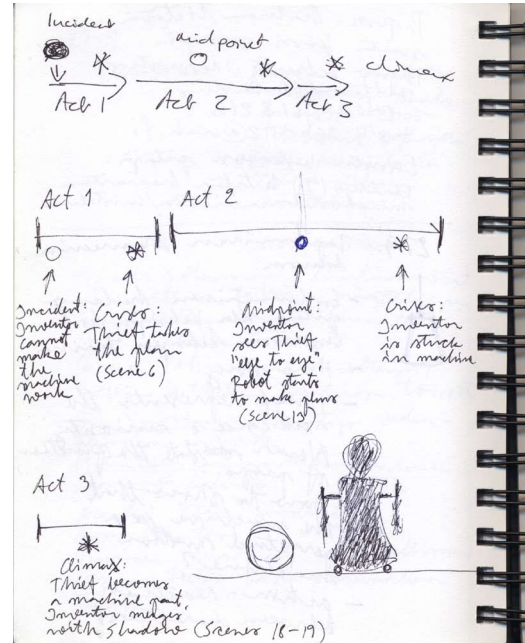 Incident
midpoint
climax
Act 1
Act 2
Act 3
Act 1
Act 2
Incident:
Inventor
cannot
make
the
machine
work
Crisis:
Thief takes
the plan
(Scene 6)
Midpoint:
Inventor
sees Thief
"eye to eye".
Robot starts
to make plans
(Scene 13)
Crisis:
Inventor
is stuck
in machine
Act 3
Climax:
Thief becomes
a machine part,
Inventor merges
with shadow (Scenes 18-19)